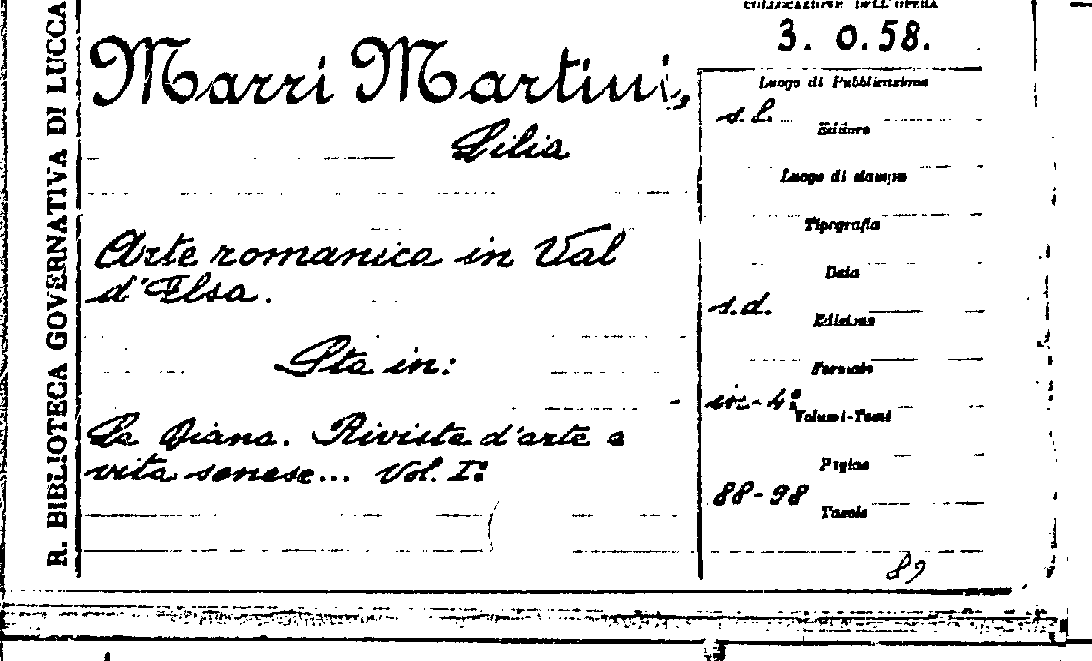 R. BIBLIOTECA GOVERNATIVA DI LUCCA
COLLOCAZIONE DELL'OPERA
3. O. 58.
Marri Martini,
Lilia
Arte romanica in Val
d'Elsa.
Sta in:
La Diana. Rivista d'arte e
vita senese... Vol. I:
Luogo di Pubblicazione
s. l.
Editore
Luogo di stampa
Tipografia
Data
s. d.
Edizione
Formato
in-4°
Volumi-Tomi
Pagine
88-98
Tavole
89